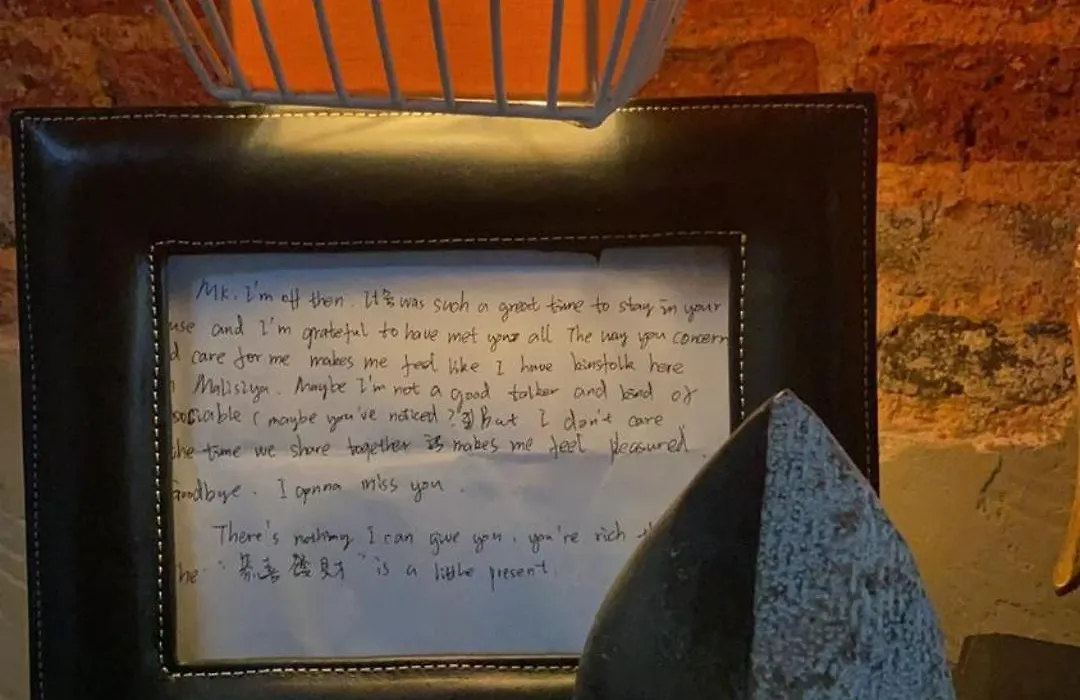 Mk. I'm off then. It was such a great time to stay in your
use and I'm grateful to have met your all The way you concern
d care for me makes me feel like I have kinsfolk here
Malisiya. Maybe I'm not a good talker and kind of
sociable (maybe you've noticed?) But I don't care
he time we share together makes me feel pleasured.
goodbye. I gonna miss you.
There's nothing I can give you, you're rich th
he "恭喜發財" is a little present.